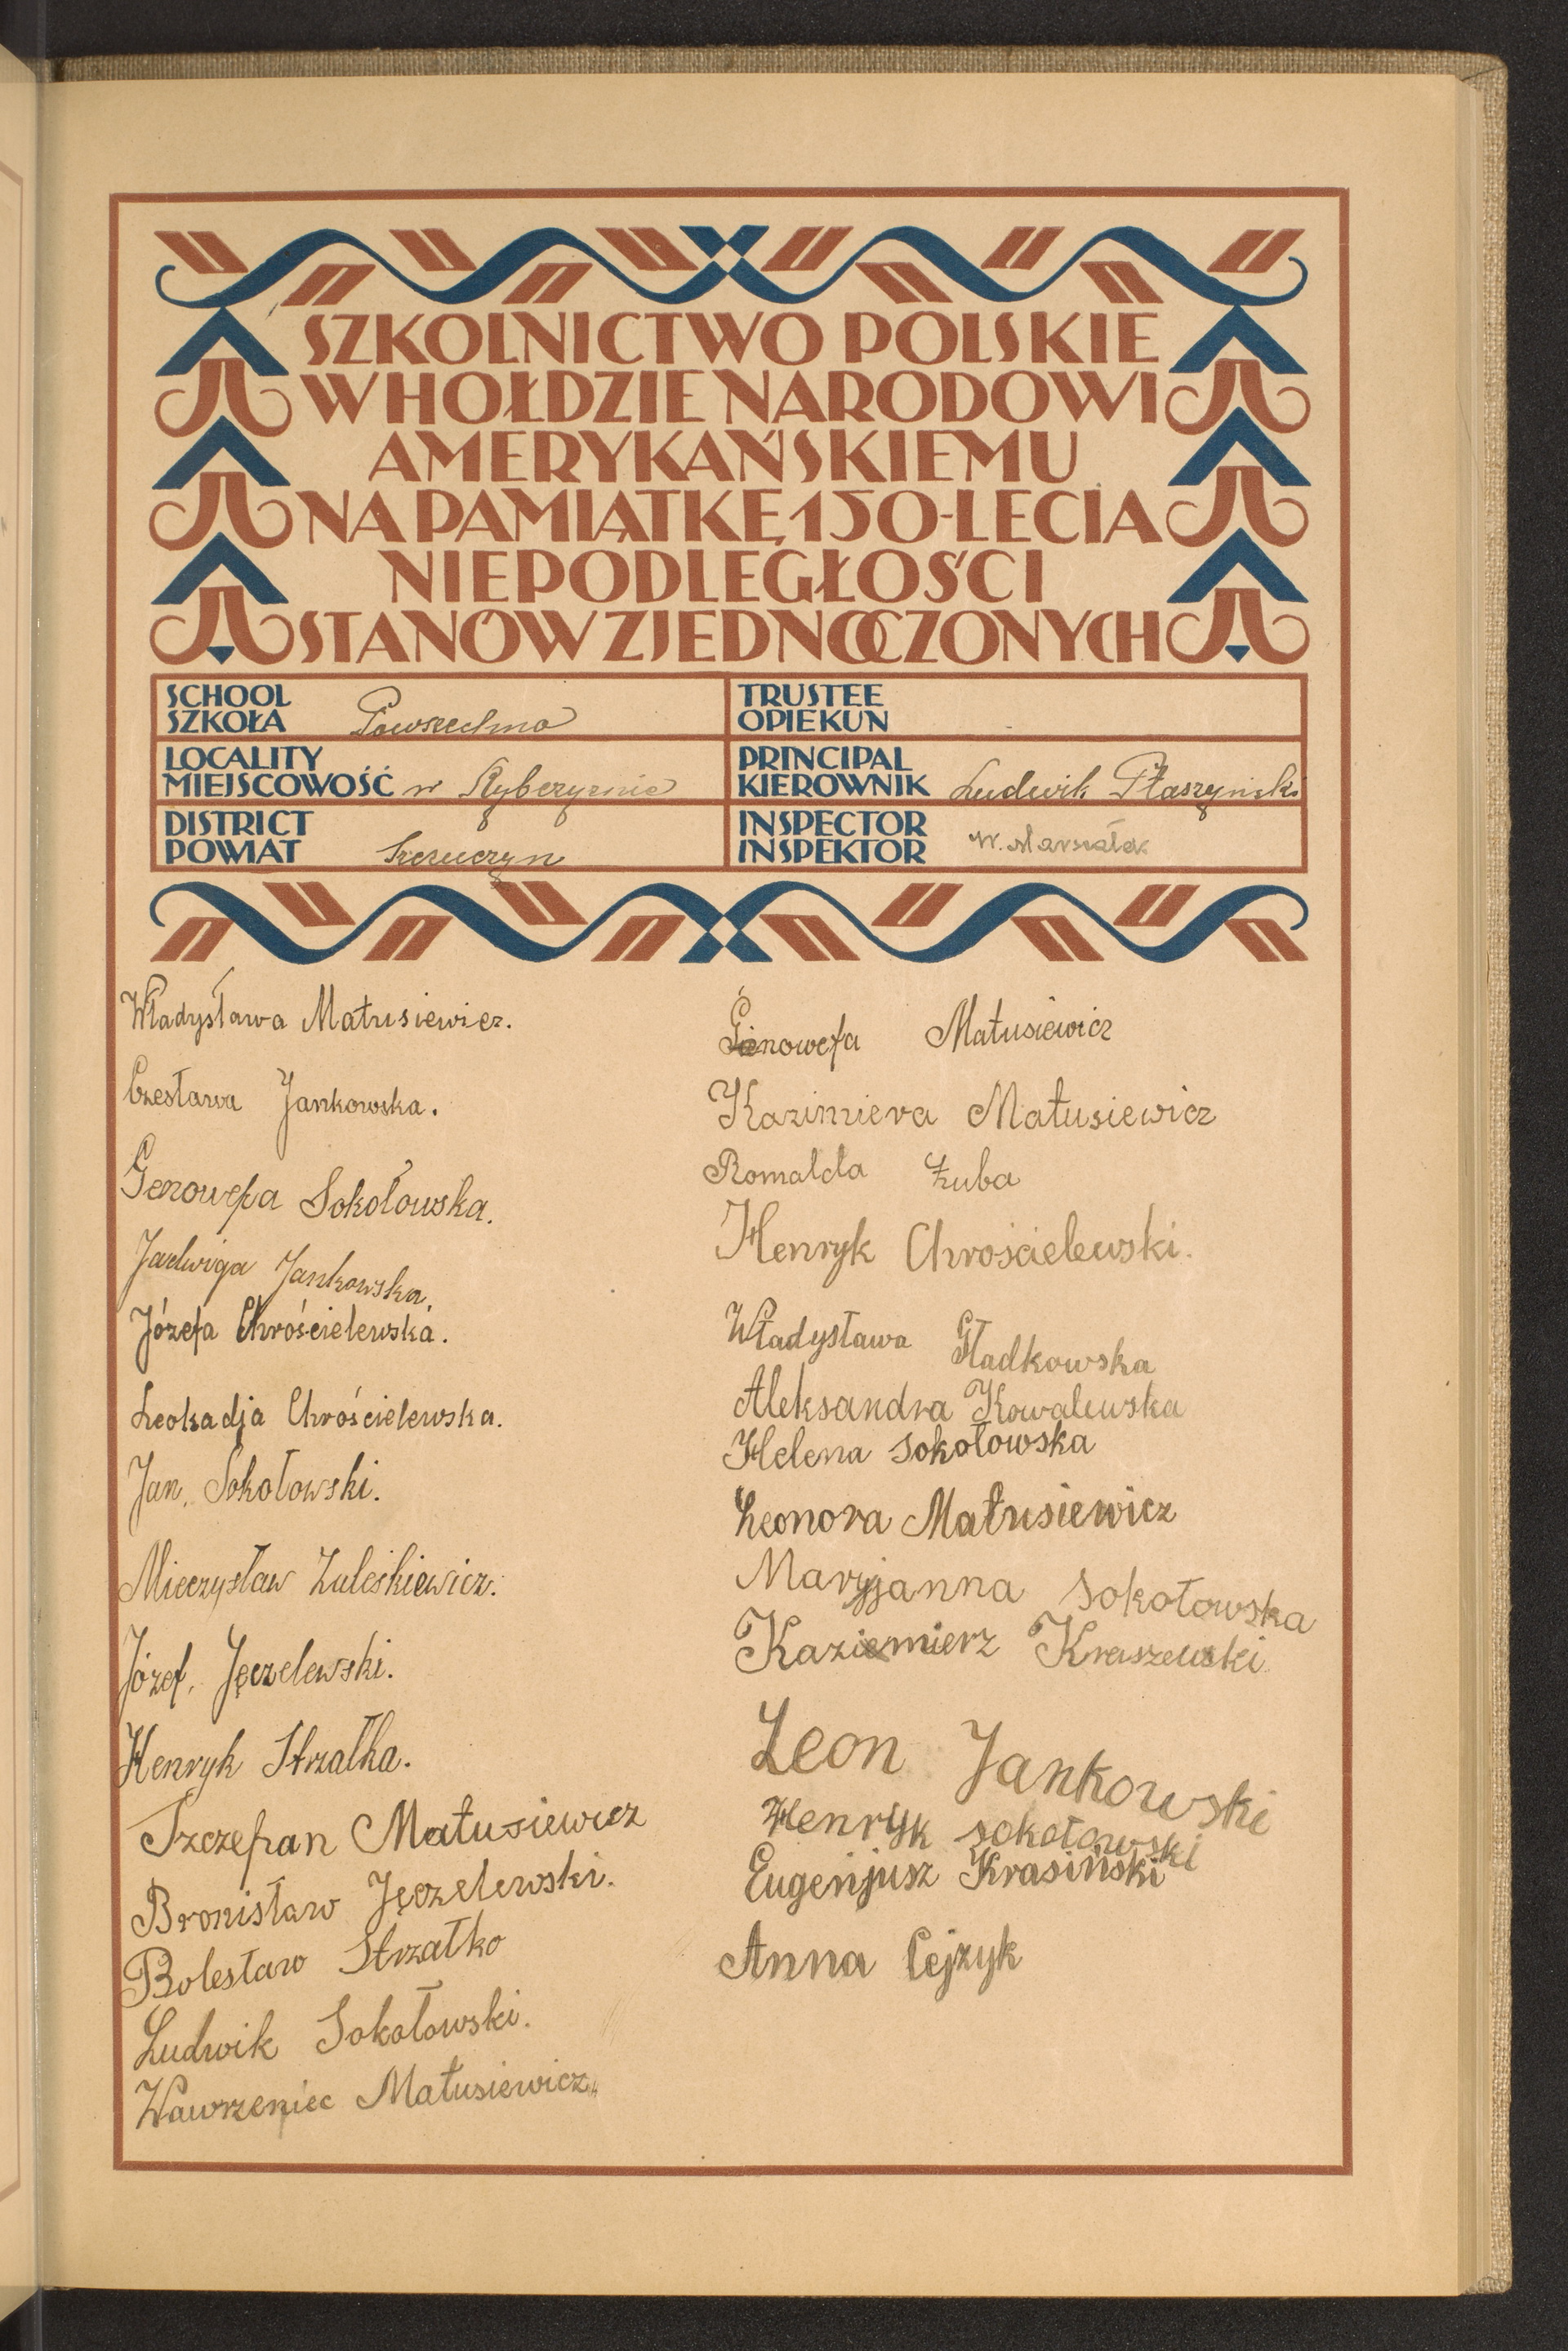 SZKOLNICTWO POLSKIE
W HOŁDZIE NARODOWI
AMERYKAŃSKIEMU
NA PAMIĄTKĘ 150-LECIA
NIEPODLEGŁOŚCI
STANÓW ZJEDNOCZONYCH
SCHOOL
SZKOŁA Powszechna
TRUSTEE
OPIEKUN
LOCALITY
MIEJSCOWOŚĆ w
PRINCIPAL
KIEROWNIK Ludwik Ptaszyński
DISTRICT
POWIAT Szczuczyn
INSPECTOR
INSPEKTOR W. Marszałek
Władysława Matusiewicz.
Czesława Jankowska.
Genowefa Sokołowska.
Jadwiga Jankowska.
Józefa Chróścielewska.
Leokadja Chróścielewska.
Jan. Sokołowski.
Mieczysław Zuleśkiewicz.
Józef. Jęczelewski.
Henryk Strzałka.
Szczepan Matusiewicz
Bronisław Jęczelewski.
Bolesław Strzałko
Ludwik Sokołowski.
Wawrzeniec Matusiewicz.
Genowefa Matusiewicz
Kazimiera Matusiewicz
Romalda Żuba
Henryk Chrościelewski.
Władysława Gładkowska
Aleksandra Kowalewska
Helena Sokołowska
Leonora Matusiewicz
Maryjanna Sokołowska
Kaziemierz Kraszewski
Leon Jankowski
Henryk Sokołowski
Eugenjusz Krasiński
Anna Cejzyk